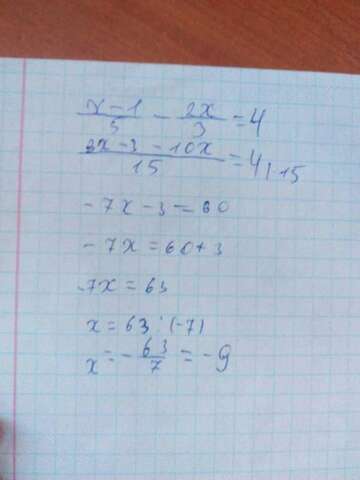 x-1/5 - 2x/3 = 4
3x-3-10x/15 = 4 | ·15
-7x-3=60
-7x=60+3
-7x=63
x=63:(-7)
x=-63/7=-9